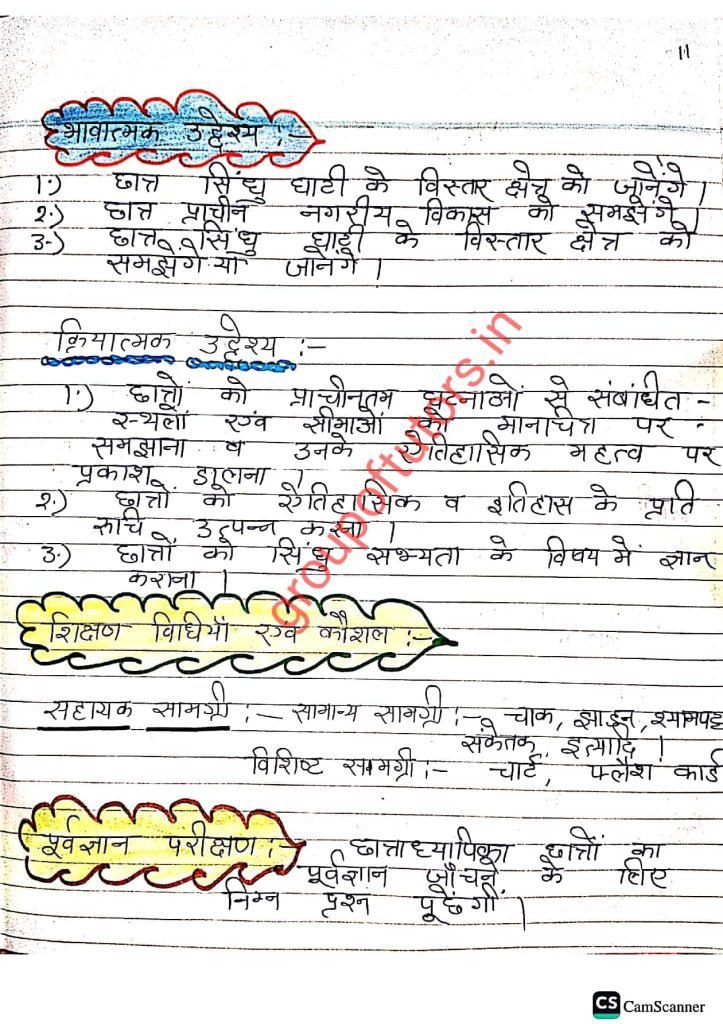 11
भावात्मक उद्देश्य :-
1.) छात्र सिंधु घाटी के विस्तार क्षेत्र को जानेंगे।
2.) छात्र प्राचीन नगरीय विकास को समझेंगे।
3.) छात्र सिंधु घाटी के विस्तार क्षेत्र को
समझेंगे या जानेंगे।
क्रियात्मक उद्देश्य :-
1.) छात्रों को प्राचीनतम घटनाओं से संबंधित -
स्थलों एवं सीमाओं को मानचित्र पर -
समझाना व उनके ऐतिहासिक महत्व पर
प्रकाश डालना।
2.) छात्रों को ऐतिहासिक व इतिहास के प्रति
रूचि उत्पन्न करना।
3.) छात्रों को सिंधु सभ्यता के विषय में ज्ञान
कराना।
शिक्षण विधियाँ एवं कौशल :-
सहायक सामग्री :- सामान्य सामग्री :- चाक, झाड़न, श्यामपट्ट
संकेतक, इत्यादि।
विशिष्ट सामग्री :- चार्ट, फ्लैश कार्ड
पूर्वज्ञान परीक्षण :- छात्राध्यापिका छात्रों का
पूर्वज्ञान जाँचने के लिए
निम्न प्रश्न पूछेंगी।
groupoftutors.in
CS CamScanner